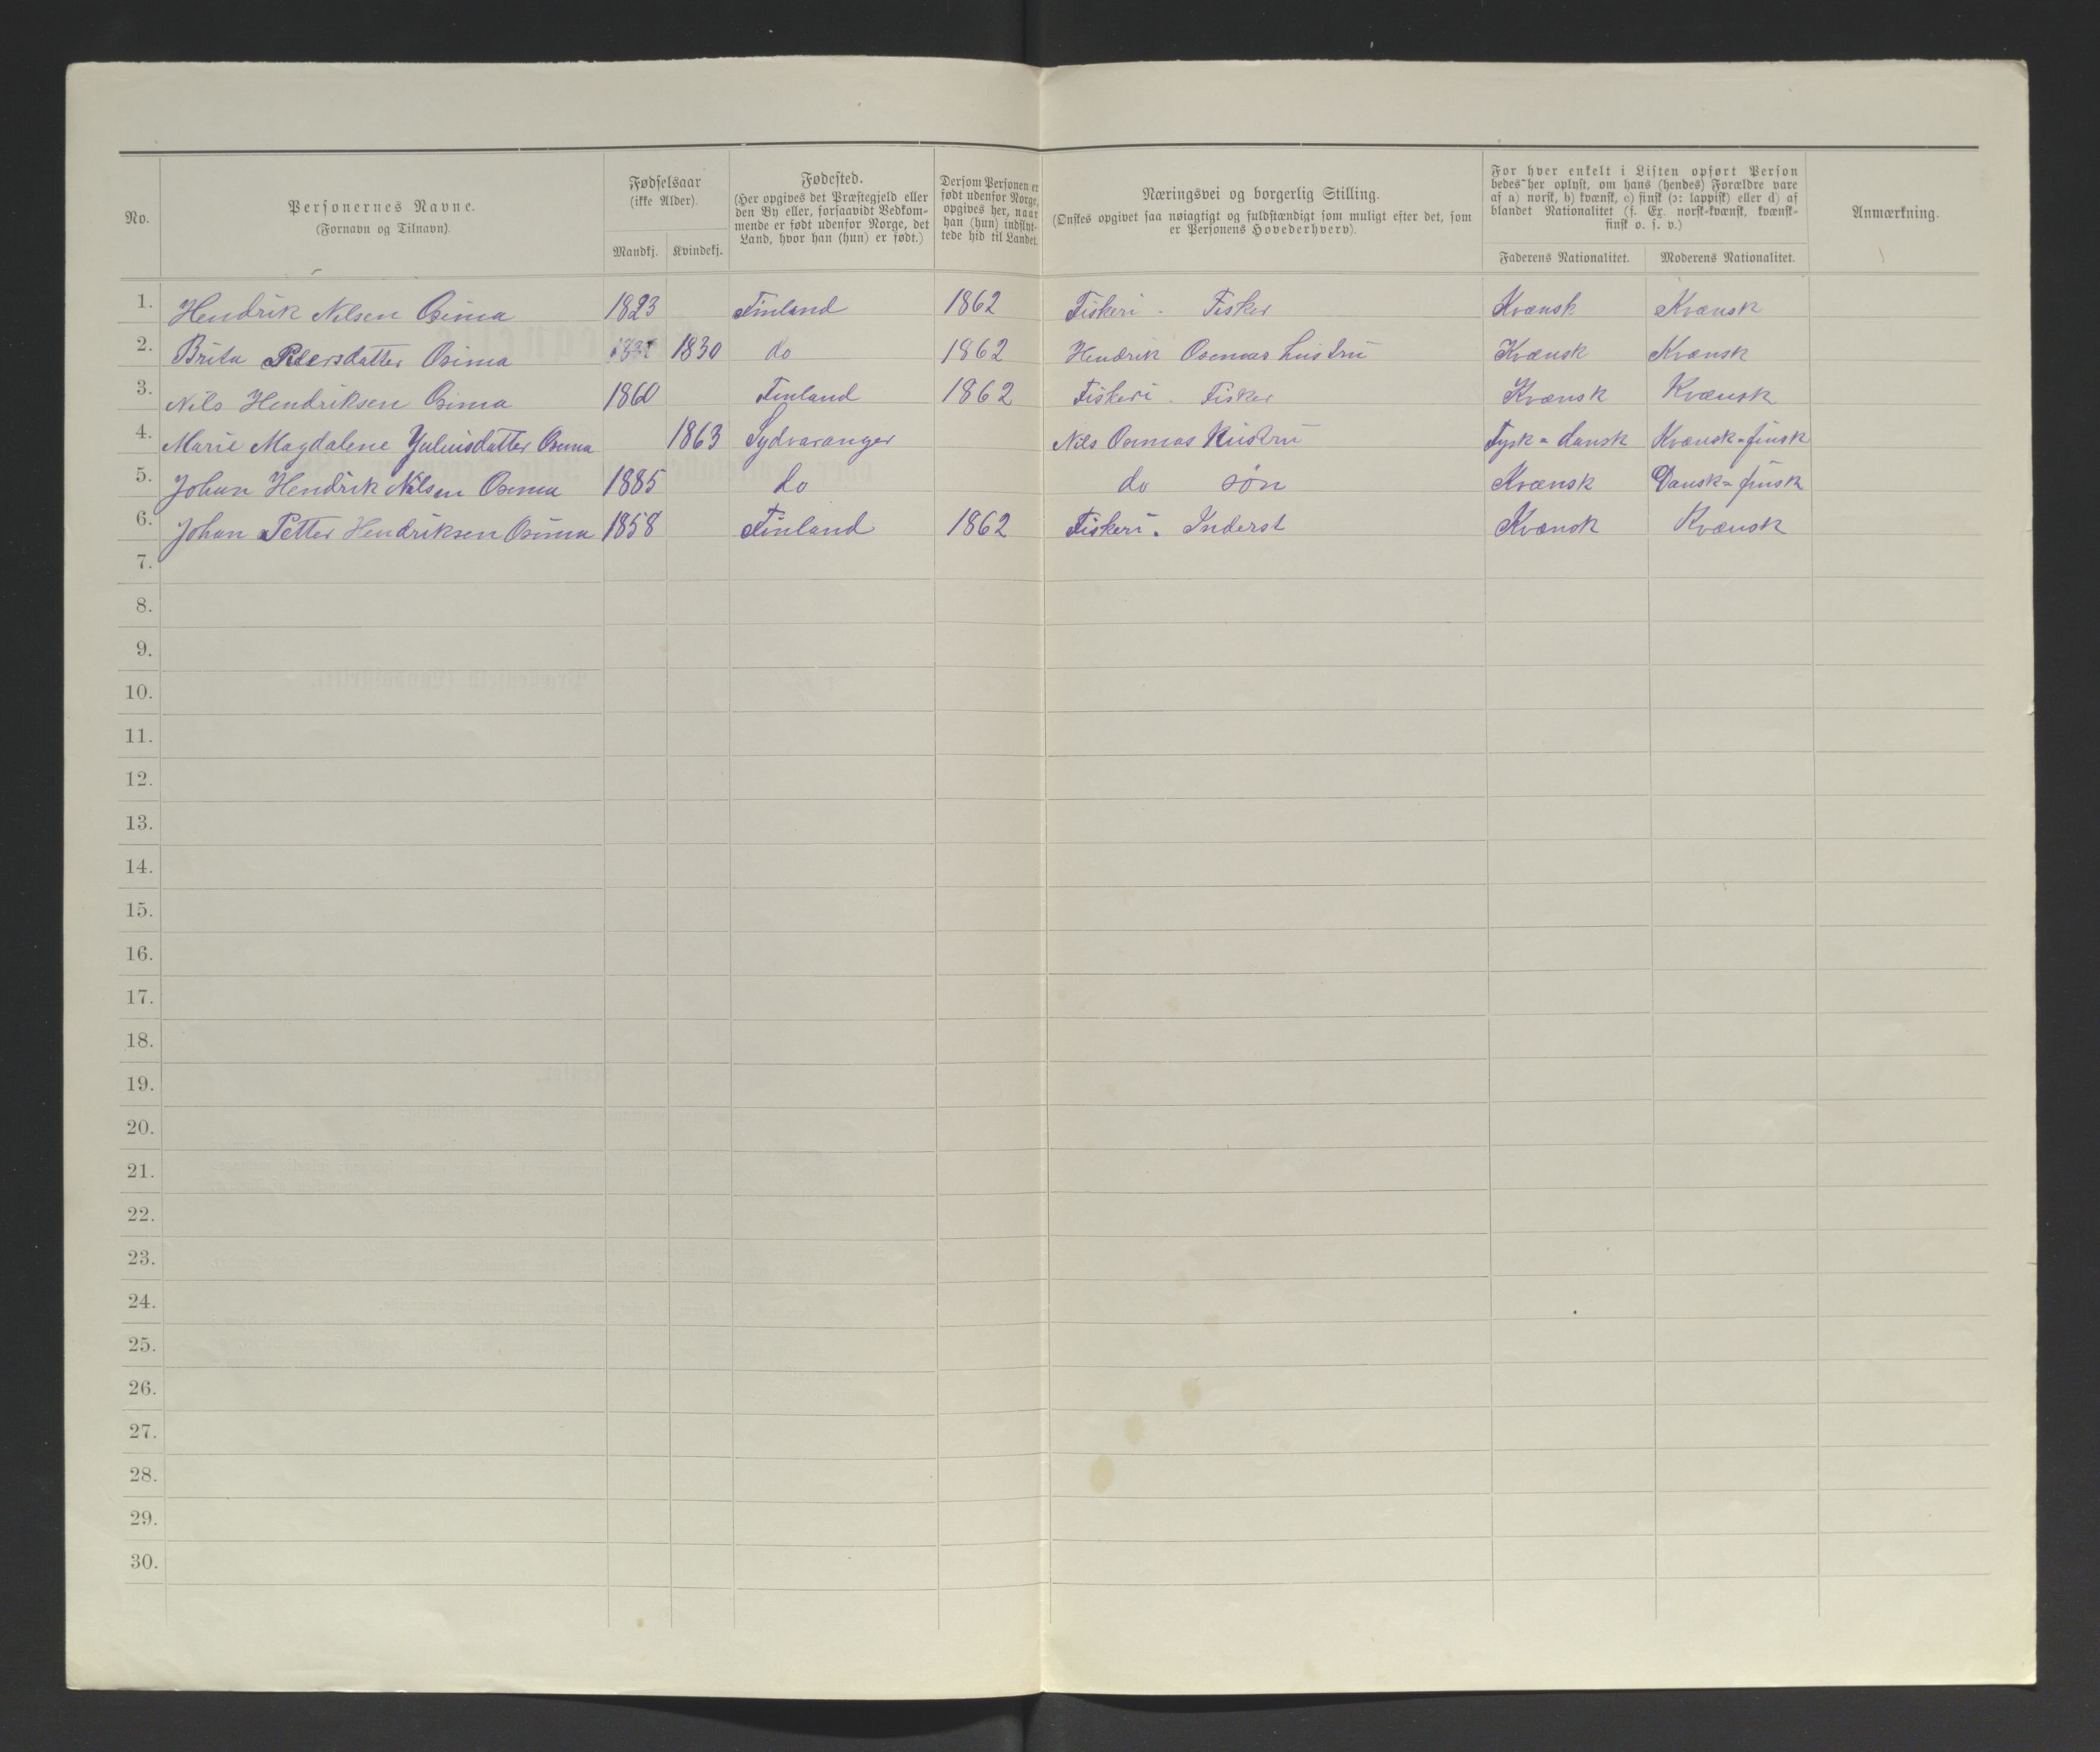 No.
Personernes Navne.
(Fornavn og Tilnavn).
Fødselsaar
(ikke Alder).
Mandkj. Kvindekj.
Fødested.
(Her opgives det Præstegjeld eller
den By eller, forsaavidt Vedkom-
mende er født udenfor Norge, det
Land, hvor han (hun) er født.)
Dersom Personen er
født udenfor Norge,
opgives her, naar
han (hun) indflyt-
tede hid til Landet.
Næringsvei og borgerlig Stilling.
(Ønskes opgivet saa nøiagtigt og fuldstændigt som muligt efter det, som
er Personens Hovederhverv).
For hver enkelt i Listen opført Person
bedes her oplyst, om hans (hendes) Forældre vare
af a) norsk, b) kvænsk, c) finsk (ɔ: lappisk) eller d) af
blandet Nationalitet (f. Ex. norsk-kvænsk, kvænsk-
finsk o. s. v.)
Faderens Nationalitet. Moderens Nationalitet.
Anmærkning.
1. Hendrik Nilsen Osima 1823 Finland 1862 Fiskeri. Fisker Kvænsk Kvænsk
2. Brita Petersdatter Osima 1830 do 1862 Hendrik Osimas hustru Kvænsk Kvænsk
3. Nils Hendriksen Osima 1860 Finland 1862 Fiskeri. Fisker Kvænsk Kvænsk
4. Marie Magdalene Juliusdatter Osima 1863 Sydvaranger Nils Osimas Hustru Tysk-dansk Kvænsk-finsk
5. Johan Hendrik Nilsen Osima 1885 do do søn Kvænsk Dansk-finsk
6. Johan Petter Hendriksen Osima 1858 Finland 1862 Fiskeri. Inderst Kvænsk Kvænsk
7.
8.
9.
10.
11.
12.
13.
14.
15.
16.
17.
18.
19.
20.
21.
22.
23.
24.
25.
26.
27.
28.
29.
30.